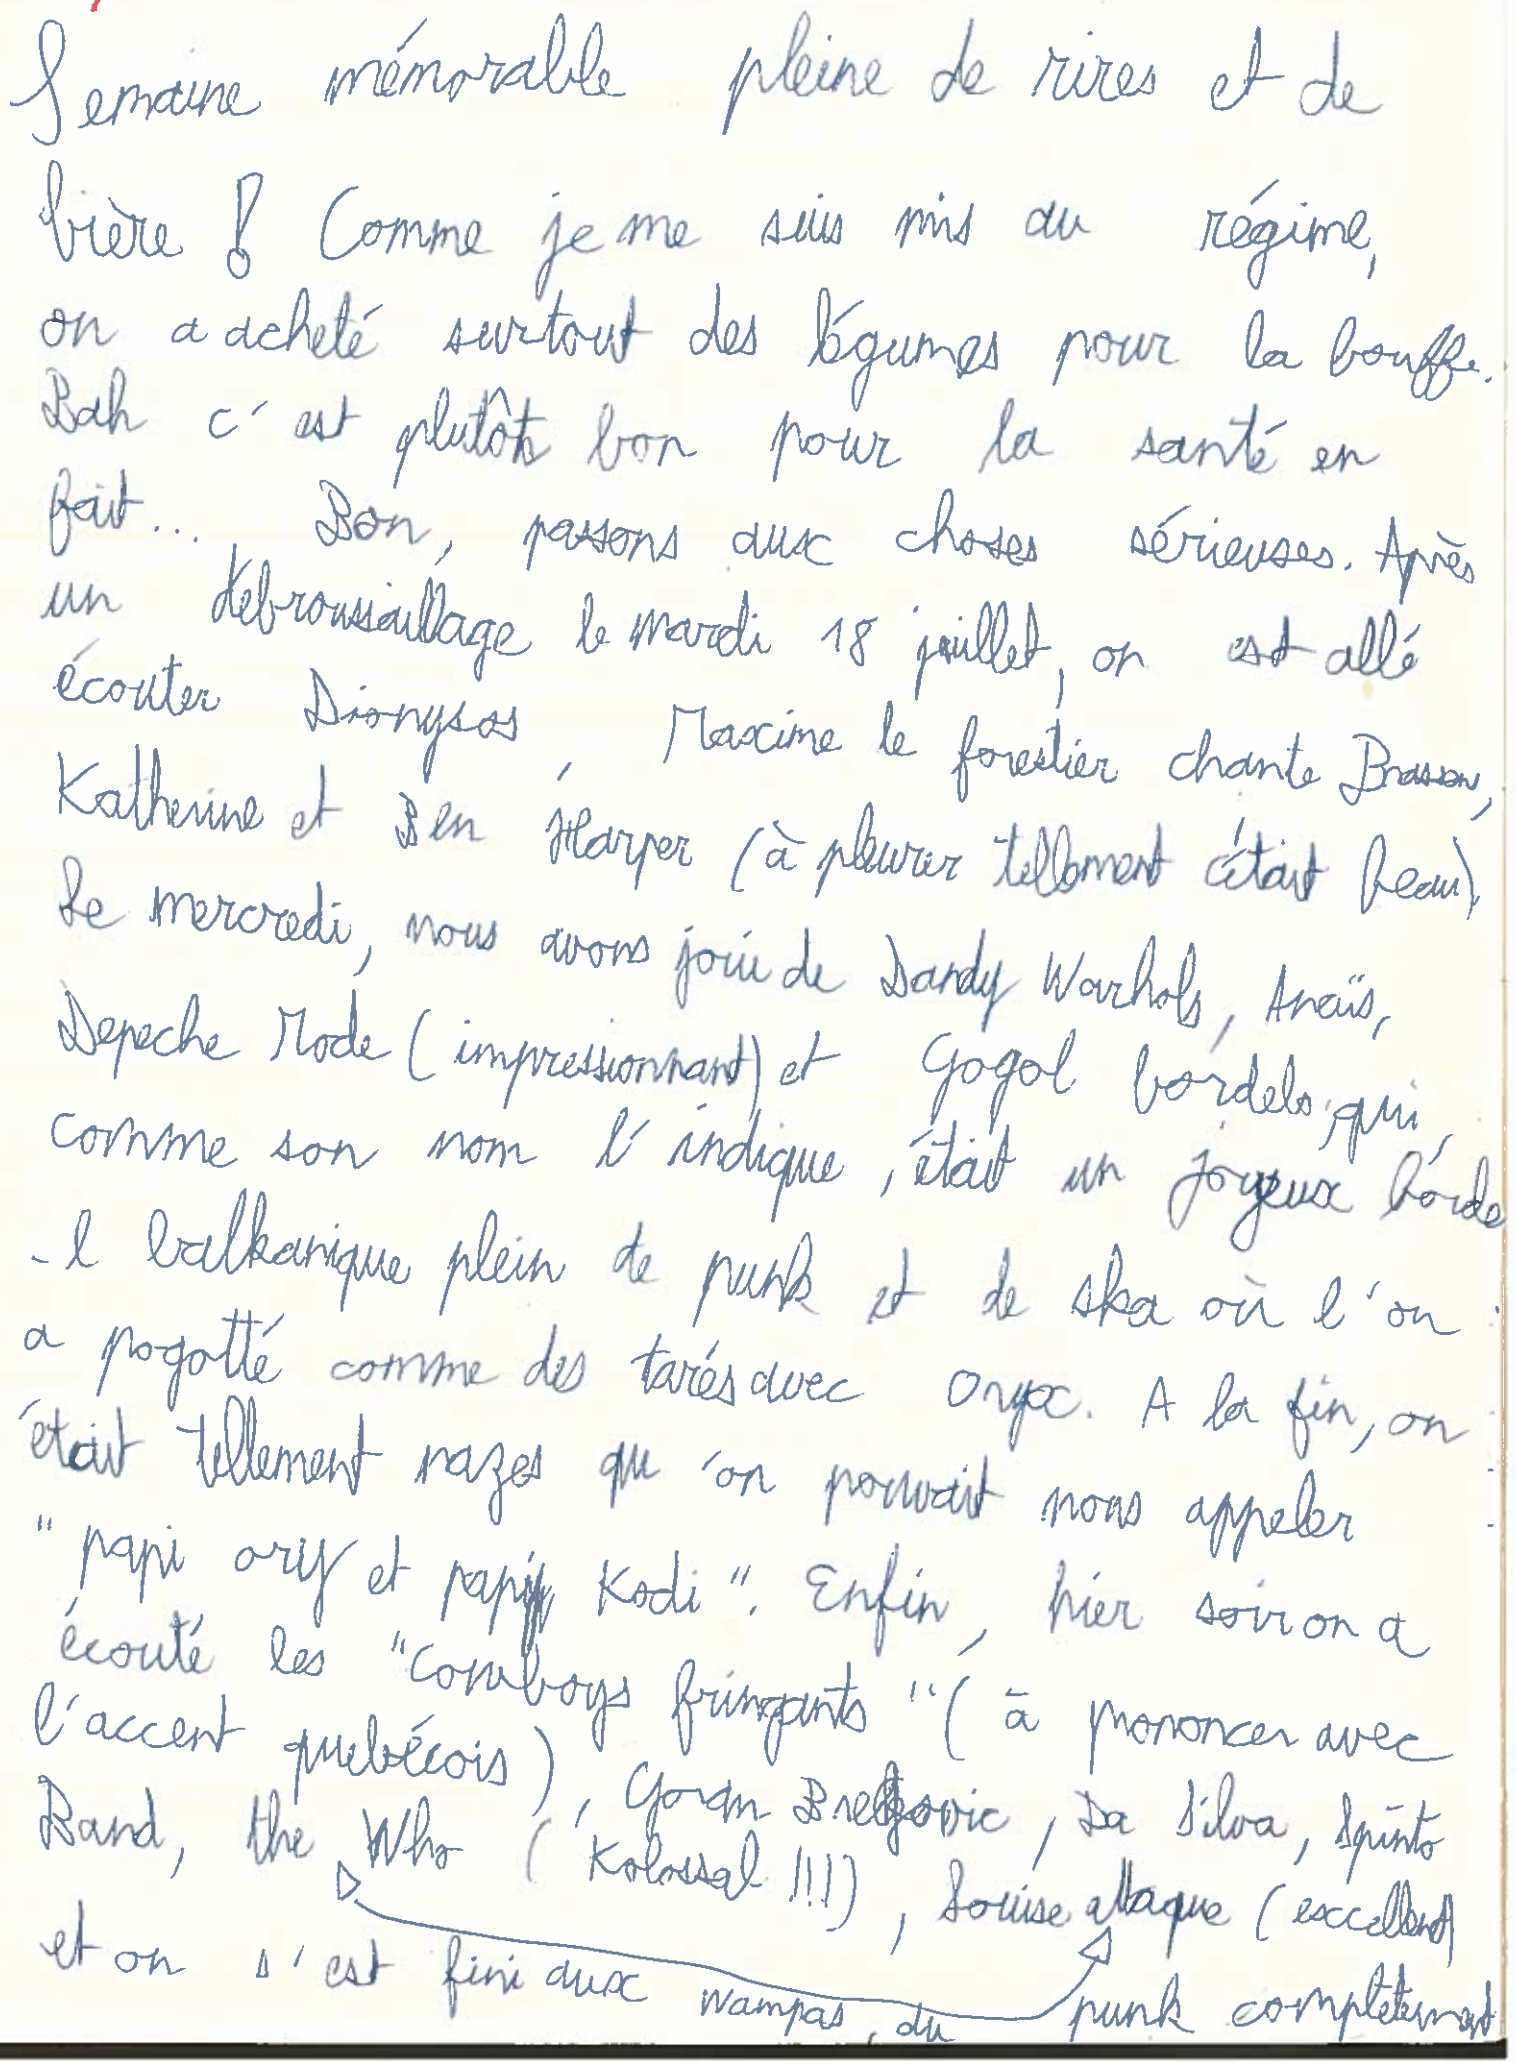 Semaine mémorable pleine de rires et de
bière ! Comme je me suis mis au régime,
on a acheté surtout des légumes pour la bouffe.
Bah c'est plutôt bon pour la santé en
fait... Bon, passons aux choses sérieuses. Après
un débroussaillage le mardi 18 juillet, on est allé
écouter Dionysos, Maxime le forestier chante Brassens,
Katherine et Ben Harper (à pleurer tellement c'était beau).
Le mercredi, nous avons joui de Dandy Warhols, Anaïs,
Depeche Mode (impressionnant) et Gogol bordels, qui,
comme son nom l'indique, était un joyeux borde
-l balkanique plein de punk et de ska où l'on
a pogotté comme des tarés avec Oryx. A la fin, on
était tellement nazes qu'on pouvait nous appeler
"papi ory et papy Kodi". Enfin, hier soir on a
écouté les "Cowboys fringants" (à prononcer avec
l'accent québécois), Goran Bregovic, Da Silva, Spinto
Band, the Who (Kolossal !!!), Louise attaque (excellent)
et on s'est fini aux wampas, du punk complètement